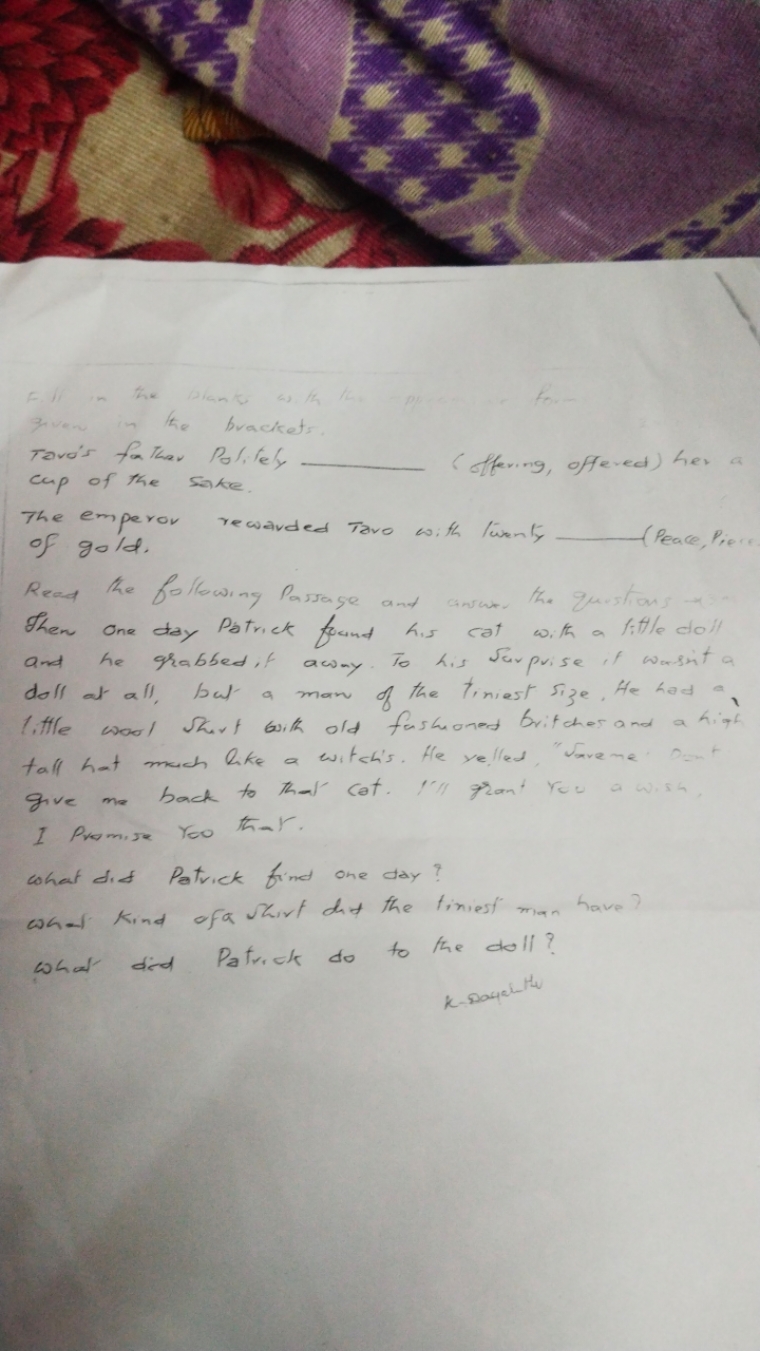 Fill in the blanks with the
given in the brackets.
Taro's father Politely ______ (offering, offered) her a
cup of the sake.
The emperor rewarded Taro with twenty ______ (Peace, Piece
of gold.
Read the following Passage and answer the questions
Then one day Patrick found his cat with a little doll
and he grabbed it away. To his Surprise it wasn't a
doll at all, but a man of the tiniest size. He had a
little wool Shirt with old fashioned britches and a high
tall hat much like a witch's. He yelled, "Save me Don't
give me back to that Cat. I'll grant You a wish,
I Promise You that.
what did Patrick find one day?
what kind of a Shirt did the tiniest man have?
what did Patrick do to the doll?